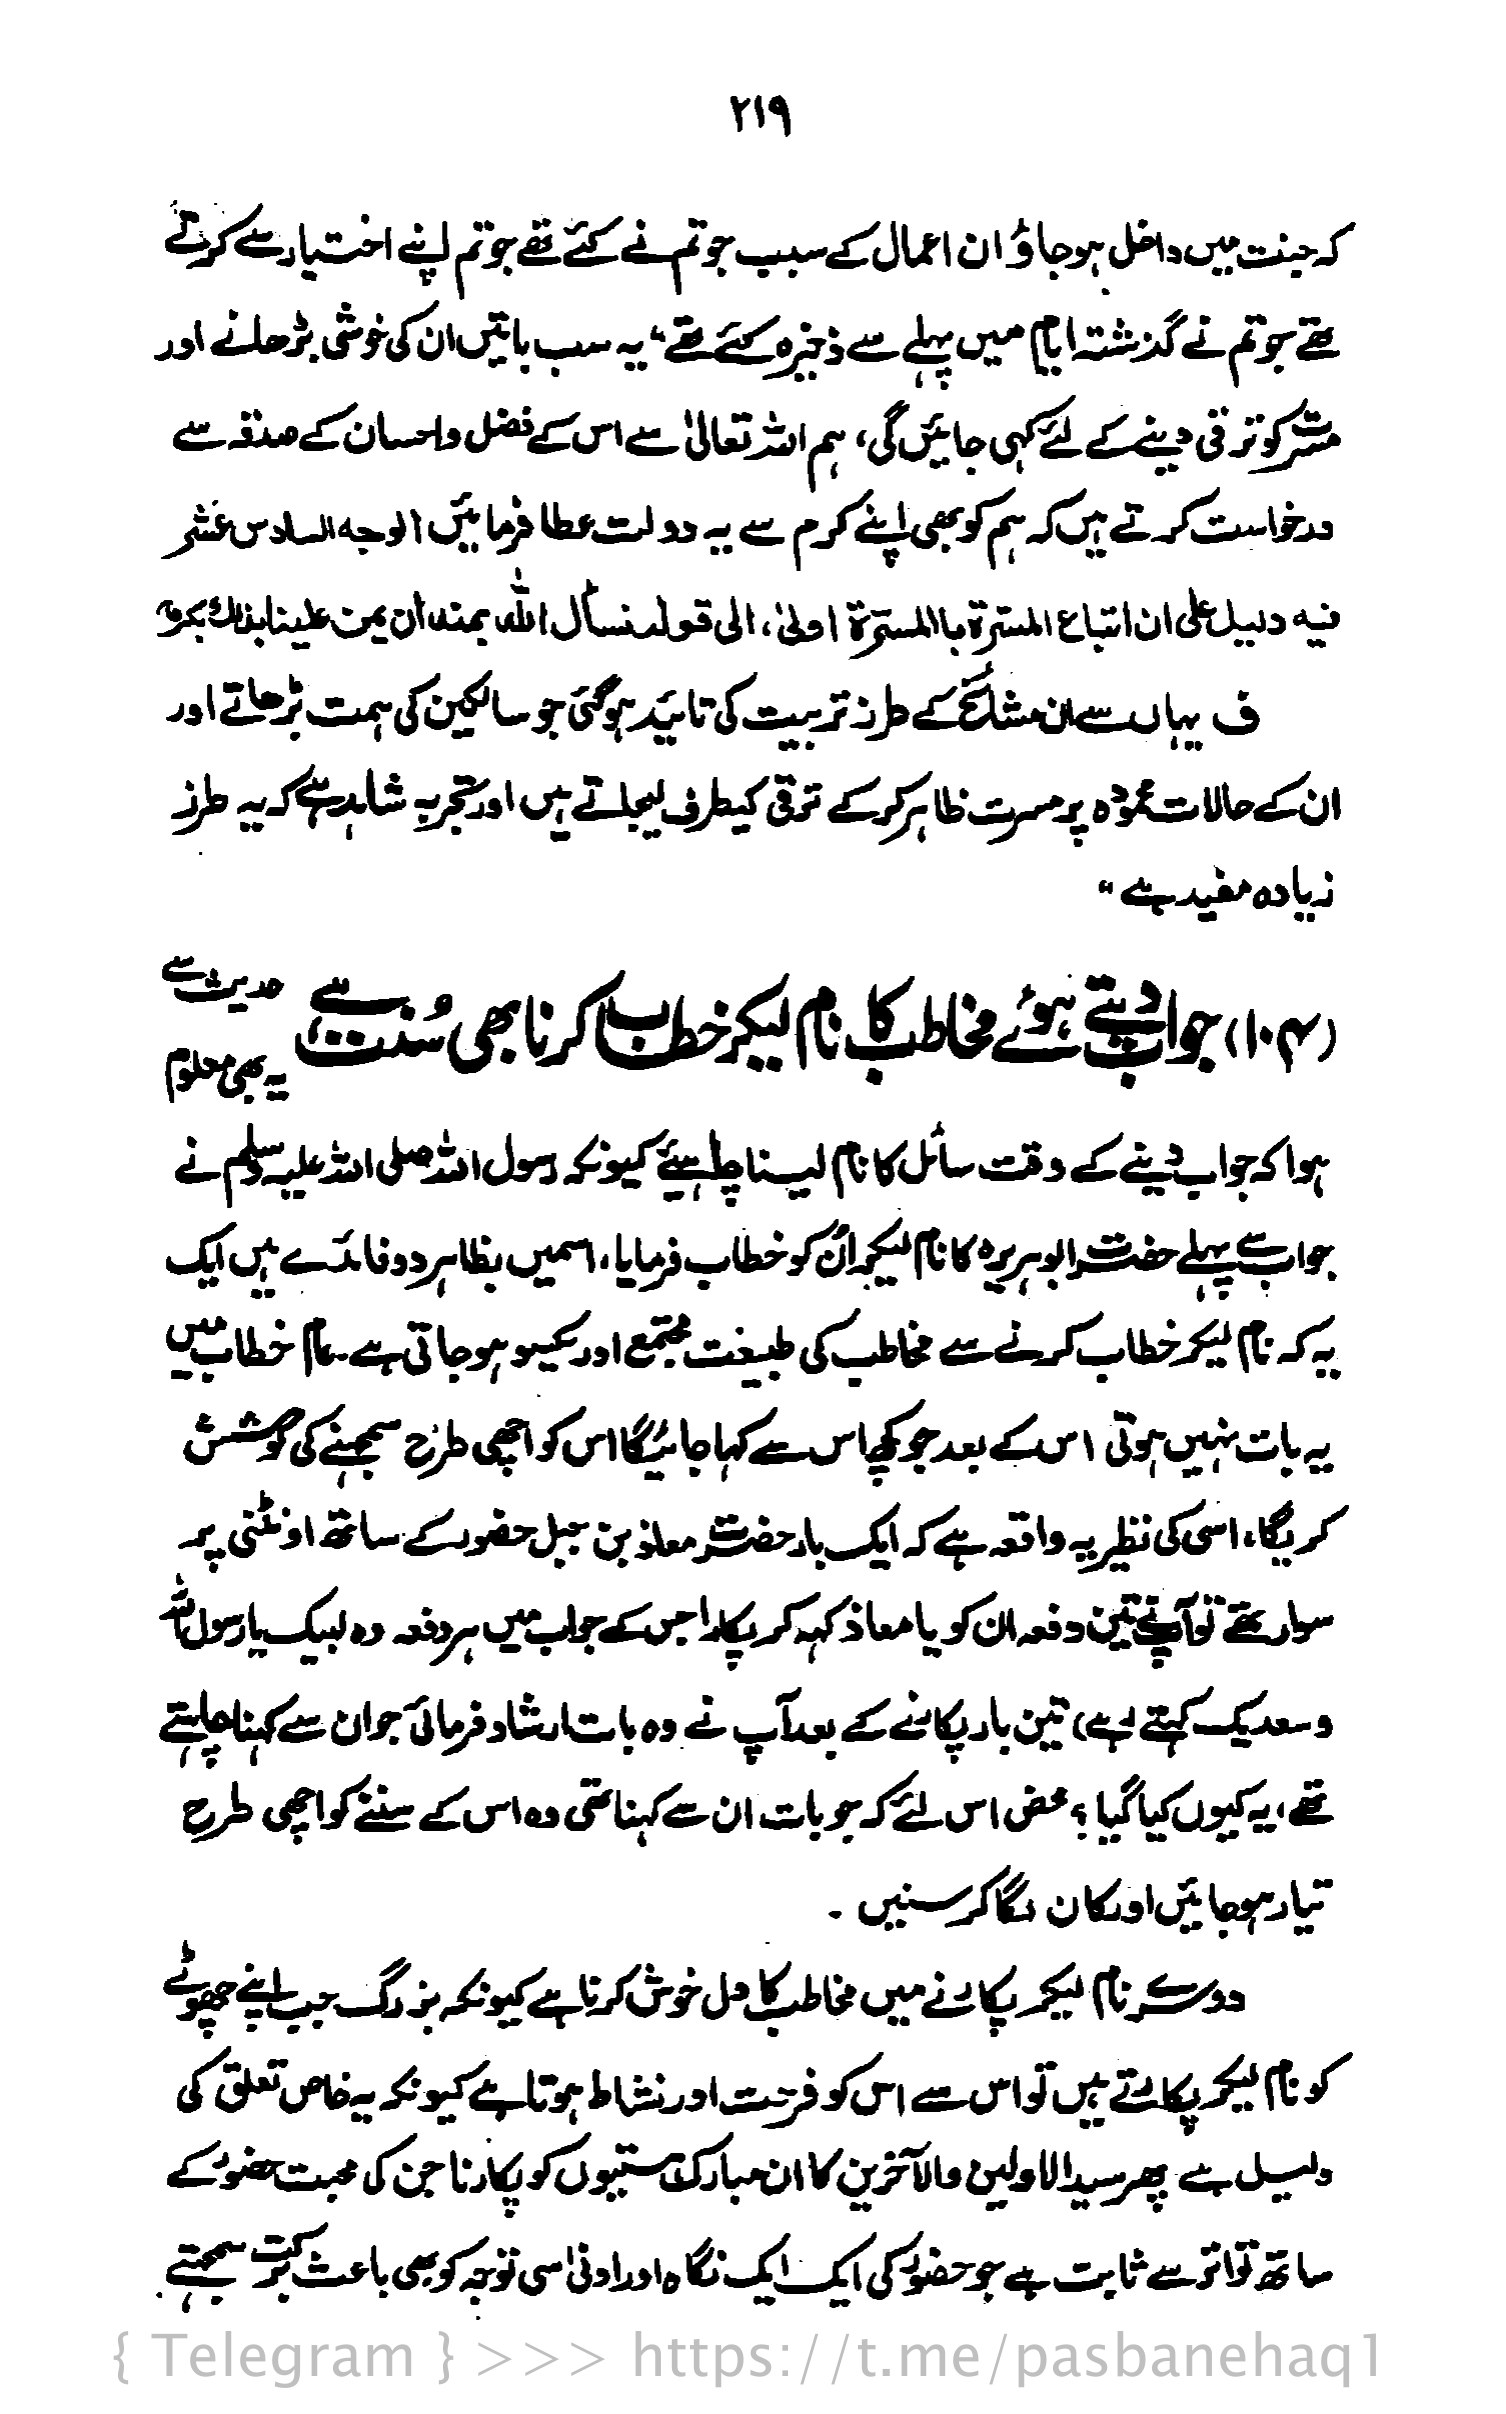 ۲۱۹
کہ جنت میں داخل ہوجاؤ ان اعمال کے سبب جو تم نے کئے تھے جو تم اپنے اختیار سے کرتے
تھے جو تم نے گذشتہ ایام میں پہلے سے ذخیرہ کئے تھے“ یہ سب باتیں ان کی خوشی بڑھانے اور
مسرت کو ترقی دینے کے لئے کہی جائیں گی، ہم اللہ تعالیٰ سے اس کے فضل واحسان کے صدقہ سے
درخواست کرتے ہیں کہ ہم کو بھی اپنے کرم سے یہ دولت عطا فرمائیں الوجه السادس عشر
فيه دليل على ان اتباع المسترة بالمسترة اولىٰ، الى قوله نسأل الله بمنه أن يمن علينا بذالك بكرمه
ف یہاں سے ان مشائخ کے طرز تربیت کی تائید ہوگئی جو سالکین کی ہمت بڑھاتے اور
ان کے حالات محمودہ پر مسرت ظاہر کرکے ترقی کیطرف لیجاتے ہیں اور تجربہ شاہد ہے کہ یہ طرز
زیادہ مفید ہے “
(۱۰۴) جواب دیتے ہوئے مخاطب کا نام لیکر خطاب کرنا بھی سُنت ہے، حدیث سے
یہ بھی معلوم
ہوا کہ جواب دینے کے وقت سائل کا نام لینا چاہیئے کیونکہ رسول اللہ صلی اللہ علیہ وسلم نے
جواب سے پہلے حضرت ابوہریرہ کا نام لیکر ان کو خطاب فرمایا، اسمیں بظاہر دو فائدے ہیں ایک
یہ کہ نام لیکر خطاب کرنے سے مخاطب کی طبیعت مجتمع اور یکسو ہوجاتی ہے۔ عام خطاب میں
یہ بات نہیں ہوتی اس کے بعد جو کچھ اس سے کہا جائیگا اس کو اچھی طرح سمجھنے کی کوشش
کریگا، اسی کی نظیر یہ واقعہ ہے کہ ایک بار حضرت معاذ بن جبل حضور کے ساتھ اونٹنی پر
سوار تھے تو آپ نے تین دفعہ ان کو یا معاذ کہہ کر پکارا جس کے جواب میں ہر دفعہ وہ لبیک یا رسول اللہ
وسعدیک کہتے رہے) تین بار پکارنے کے بعد آپ نے وہ بات ارشاد فرمائی جو ان سے کہنا چاہتے
تھے، یہ کیوں کیا گیا؟ محض اس لئے کہ جو بات ان سے کہنا تھی وہ اس کے سننے کو اچھی طرح
تیار ہوجائیں اور کان لگا کر سنیں ۔
دوسرے نام لیکر پکارنے میں مخاطب کا دل خوش کرنا ہے کیونکہ بزرگ جب اپنے چھوٹے
کو نام لیکر پکارتے ہیں تو اس سے اس کو فرحت اور نشاط ہوتا ہے کیونکہ یہ خاص تعلق کی
دلیل ہے پھر سیدالاولین والآخرین کا ان مبارک ہستیوں کو پکارنا جن کی محبت حضورؐ کے
ساتھ تواتر سے ثابت ہے جو حضورؐ کی ایک ایک نگاہ اور ادنیٰ سی توجہ کو بھی باعث برکت سمجھتے
{ Telegram } >>> https://t.me/pasbanehaq1